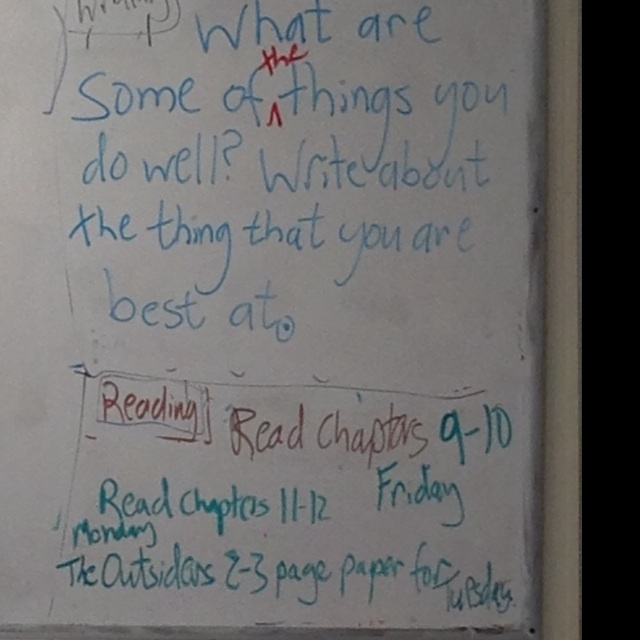 Writing
What are
Some of the things you
do well? Write about
the thing that you are
best at.
Reading Read Chapters 9-10
Friday
Read Chapters 11-12
Monday
The Outsiders 2-3 page paper for Tuesday.